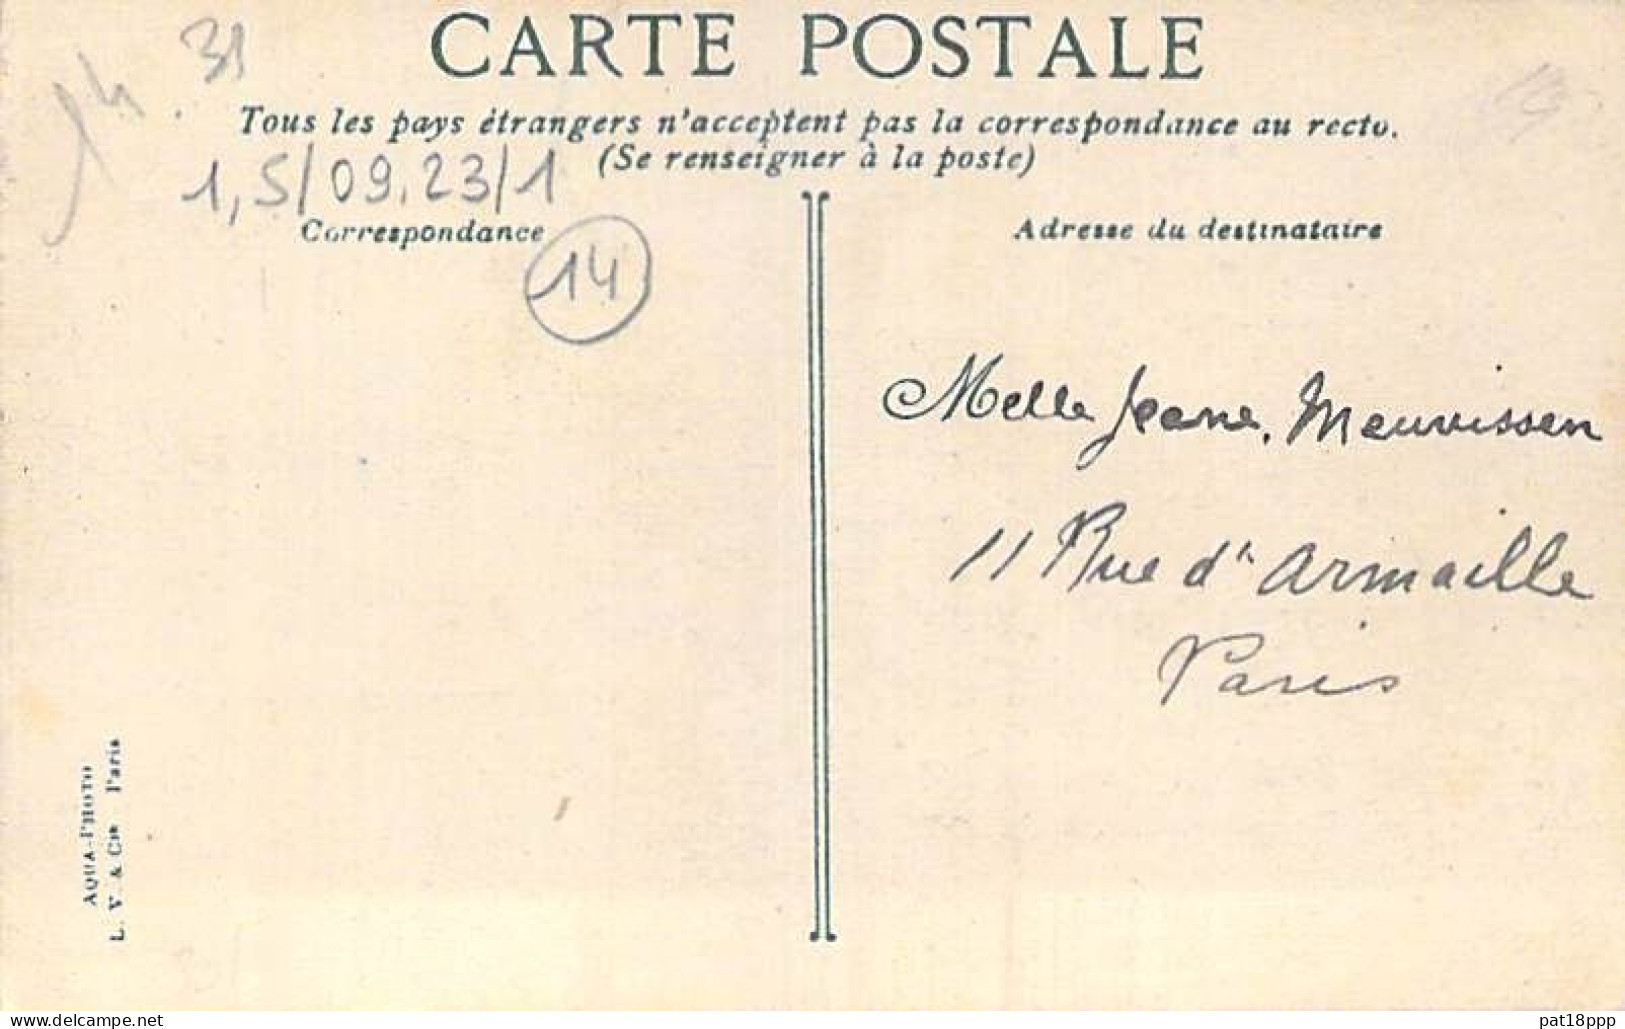 CARTE POSTALE
31
14
Tous les pays étrangers n'acceptent pas la correspondance au recto.
(Se renseigner à la poste)
1,5/09.23/1
Correspondance
14
Adresse du destinataire
Melle Jeane. Meuvissen
11 Rue d'Armaille
Paris
AQUA-PHOTO
L. V. & Cie Paris
Delcampe.net
pat18ppp